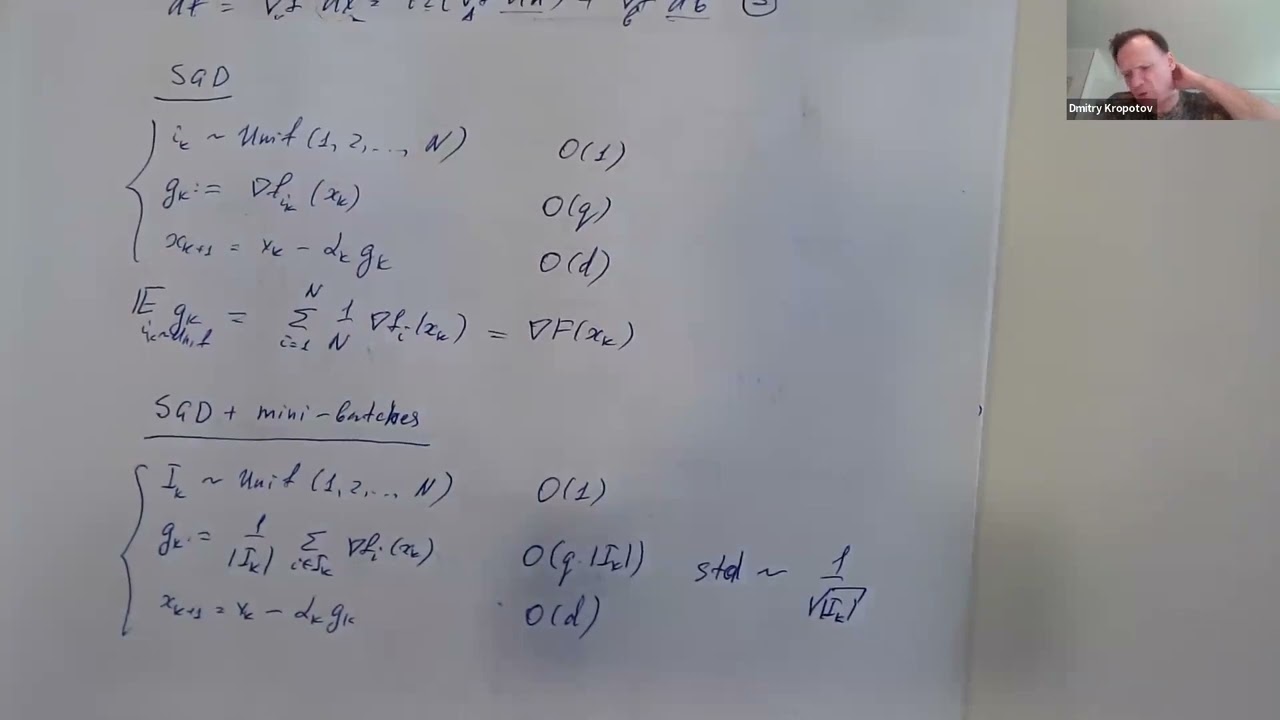 SGD
i_k ~ Unif (1, 2, ..., N) O(1)
g_k := ∇f_{i_k} (x_k) O(q)
x_{k+1} = x_k - α_k g_k O(d)
𝔼_{i_k ~ Unif} g_k = Σ_{i=1}^{N} 1/N ∇f_i (x_k) = ∇F(x_k)
SGD + mini-batches
I_k ~ Unif (1, 2, ..., N) O(1)
g_k := 1/|I_k| Σ_{i∈I_k} ∇f_i (x_k) O(q·|I_k|) std ~ 1/√|I_k|
x_{k+1} = x_k - α_k g_k O(d)
Dmitry Kropotov